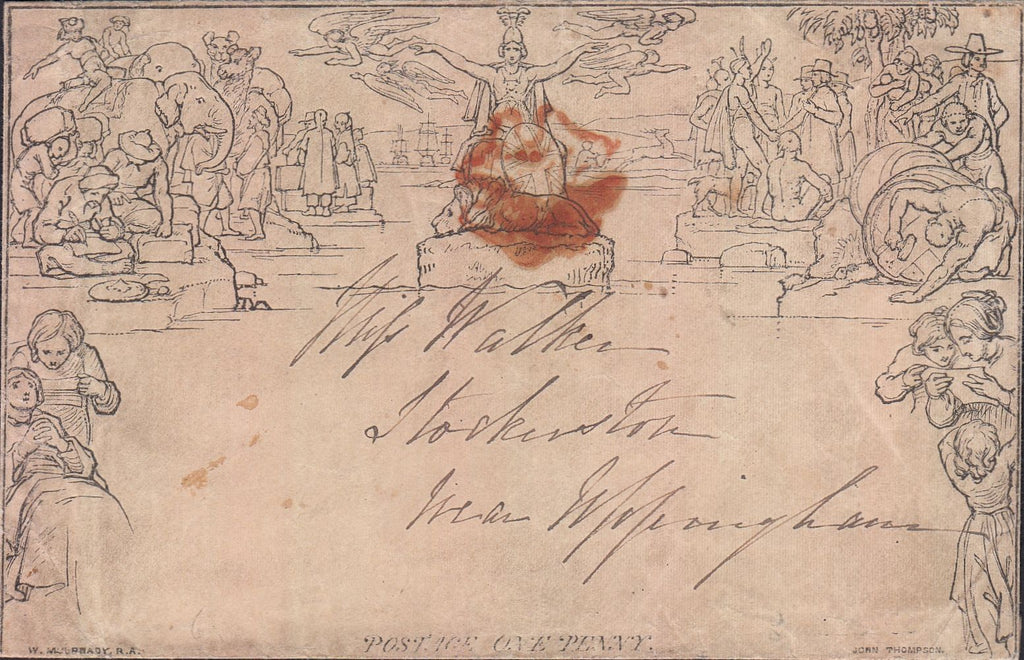 Miss Walker
Stockerston
near Uppingham
POSTAGE ONE PENNY.
W. MULREADY, R.A.
JOHN THOMPSON.